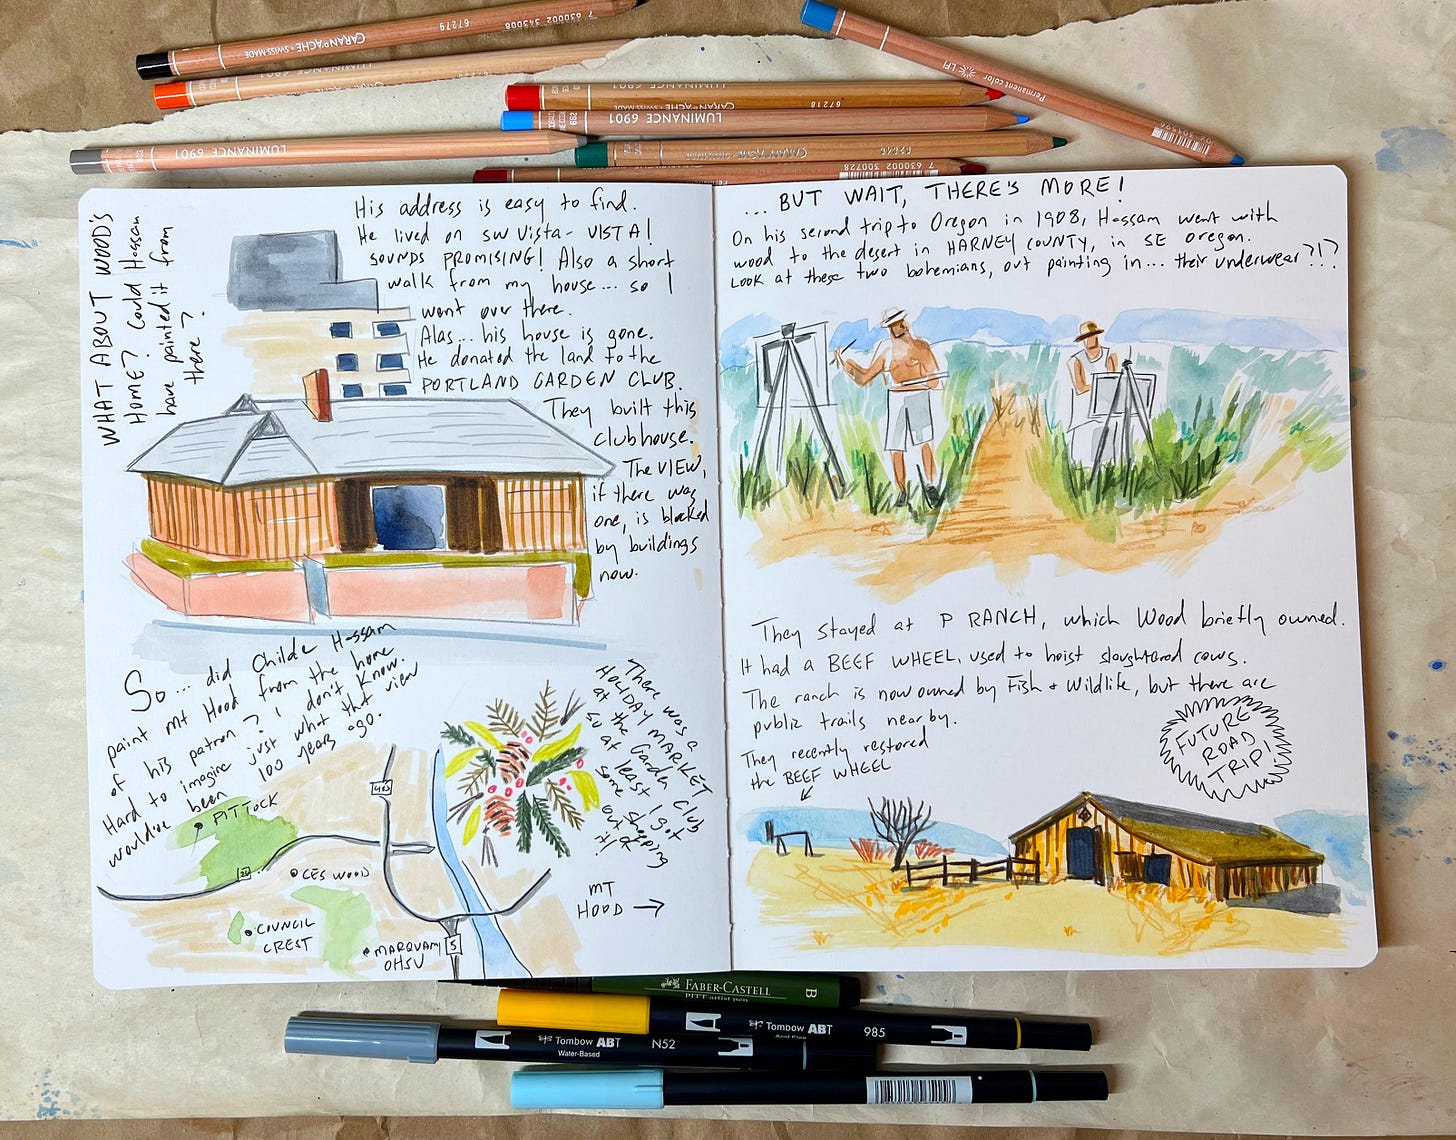 67279
7 630002 343008
CARAN D'ACHE · SWISS MADE
LUMINANCE 6901
LUMINANCE 6901
CARAN D'ACHE · SWISS MADE
67218
7 630002 300728
Permanent color
LFI
WHAT ABOUT WOOD'S
HOME? Could Hassam
have painted it from
there?
His address is easy to find.
He lived on SW Vista - VISTA!
SOUNDS PROMISING! Also a short
walk from my house... so I
went over there.
Alas... his house is gone.
He donated the land to the
PORTLAND GARDEN CLUB.
They built this
clubhouse.
The VIEW,
if there was
one, is blocked
by buildings
now.
So... did Childe Hassam
paint Mt Hood from the home
of his patron? I don't know.
Hard to imagine just what that view
would've been 100 years ago.
There was a
HOLIDAY MARKET
at the Garden Club
so at least I got
some shopping
out of
it!
PITTOCK
405
26
CES WOOD
COUNCIL
CREST
MARQUAM
OHSU
5
MT
HOOD →
... BUT WAIT, THERE'S MORE!
On his second trip to Oregon in 1908, Hassam went with
Wood to the desert in HARNEY COUNTY, in SE Oregon.
Look at these two bohemians, out painting in... their underwear?!?
They stayed at P RANCH, which Wood briefly owned.
It had a BEEF WHEEL, used to hoist slaughtered cows.
The ranch is now owned by Fish + Wildlife, but there are
public trails nearby.
They recently restored
the BEEF WHEEL
FUTURE
ROAD
TRIP!
FABER-CASTELL
PITT artist pen
B
Tombow ABT
985
Tombow ABT
N52
Water-Based